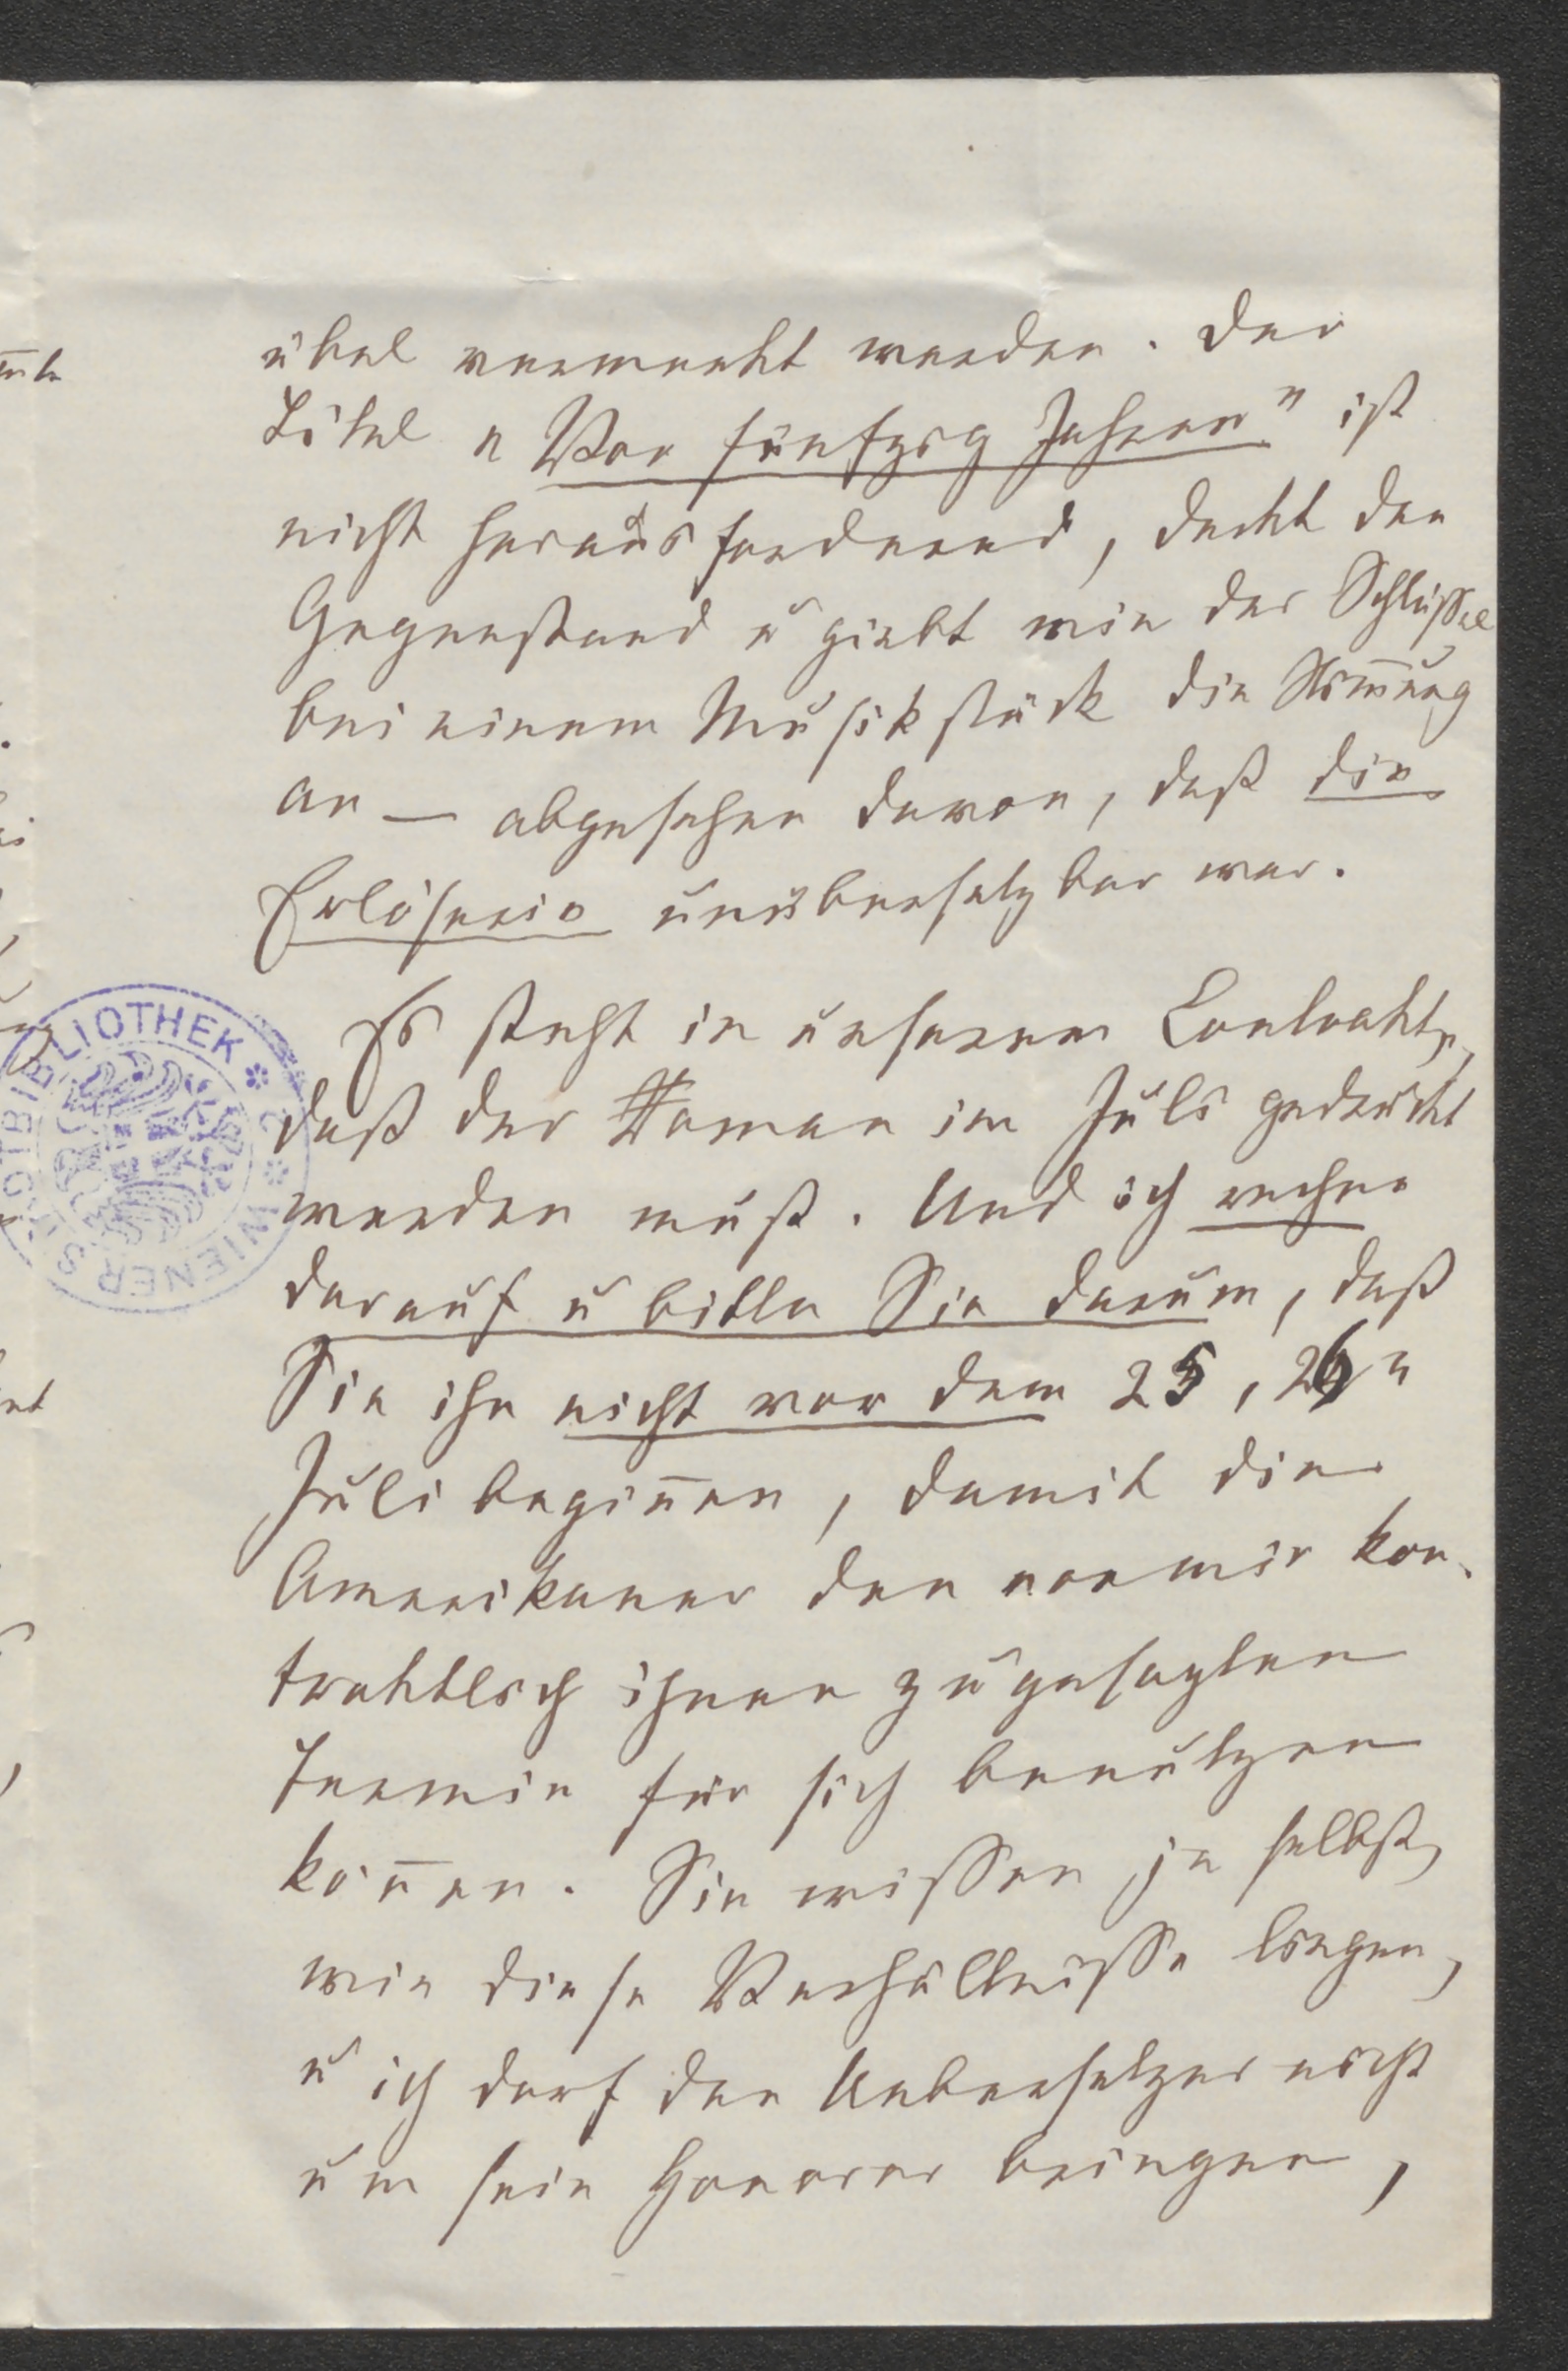 übel vermerkt werden. Der
Titel „Vor fünfzig Jahren" ist
nicht herausfordernd, deckt den
Gegenstand u giebt wie der Schlüssel
bei einem Musikstück die Stim̄ung
an — abgesehen davon, daß die
Erlöserin unübersetzbar war.
Es steht in unserem Contrakte,
daß der Roman im Juli gedruckt
werden muß. Und ich rechne
darauf u bitte Sie darum, daß
Sie ihn nicht vor dem 25, 26n
Juli begin̄en, damit die
Amerikaner den von mir kon-
traktlich ihnen zugesagten
Termin für sich benutzen
kön̄en. Sie wissen ja selbst,
wie diese Verhältnisse liegen,
u ich darf den Uebersetzer nicht
um sein Honorar bringen,
WIENER STADTBIBLIOTHEK